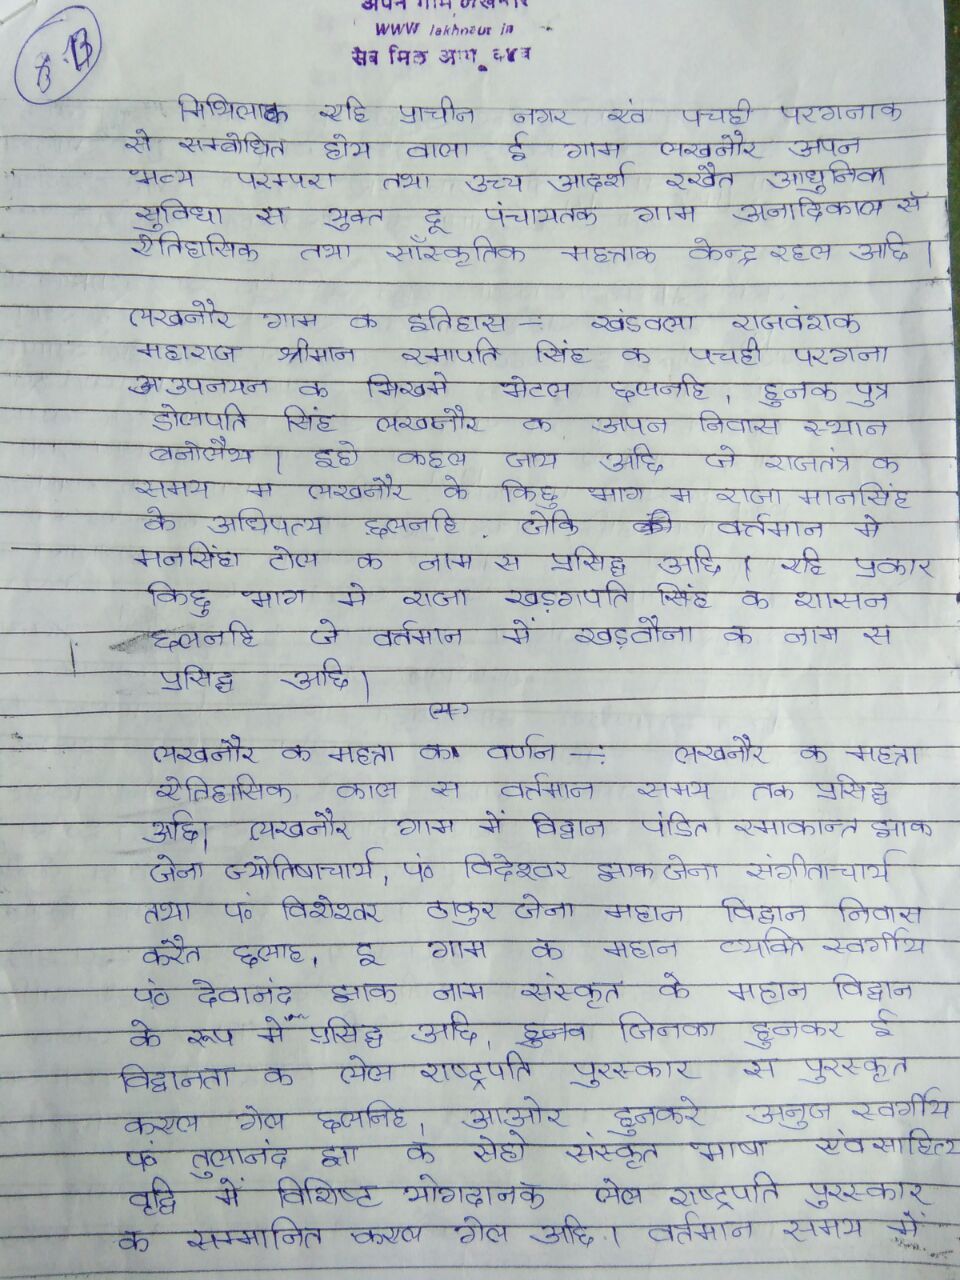 अपन गाम लखनौर
www lakhnaur in
सब मिल आगा बढ़ब
B
मिथिलाक एहि प्राचीन नगर एवं पचही परगनाक
से सम्बोधित होय वाला ई गाम लखनौर अपन
भव्य परम्परा तथा उच्च आदर्श रखैत आधुनिक
सुविधा स युक्त दू पंचायतक गाम अनादिकाल सँ
ऐतिहासिक तथा साँस्कृतिक महत्ताक केन्द्र रहल अछि।
लखनौर गाम क इतिहास :- खंडवला राजवंशक
महाराज श्रीमान रमापति सिंह क पचही परगना
उपनयन क भिखमे भेटल छलनहि, हुनक पुत्र
डोलपति सिंह लखनौर क अपन निवास स्थान
बनोलैथ। इहो कहल जाय अछि जे राजतंत्र क
समय म लखनौर के किछु भाग म राजा मानसिंह
के अधिपत्य छलनहि जेकि वर्तमान मे
मनसिंहा टोल क नाम स प्रसिद्ध अछि। एहि प्रकार
किछु भाग मे राजा खड़गपति सिंह क शासन
छलनहि जे वर्तमान में खड़वौना क नाम स
प्रसिद्ध अछि।
लखनौर क महत्ता का वर्णन :- लखनौर क महत्ता
ऐतिहासिक काल स वर्तमान समय तक प्रसिद्ध
अछि। लखनौर गाम में विद्वान पंडित रमाकान्त झाक
जेना ज्योतिषाचार्य, पं० विदेश्वर झाक जेना संगीताचार्य
तथा पं० विशेश्वर ठाकुर जेना महान विद्वान निवास
करैत छलाह, इ गाम क महान व्यक्ति स्वर्गीय
पं० देवानंद झाक नाम संस्कृत के महान विद्वान
के रूप में प्रसिद्ध अछि, हुनव जिनका हुनकर ई
विद्वानता क लेल राष्ट्रपति पुरस्कार स पुरस्कृत
करल गेल छलनिह, आओर हुनकरे अनुज स्वर्गीय
पं० तुलानंद झा क सेहो संस्कृत भाषा एवं साहित्य
वृद्धि में विशिष्ट योगदानक लेल राष्ट्रपति पुरस्कार
क सम्मानित करल गेल अछि। वर्तमान समय में